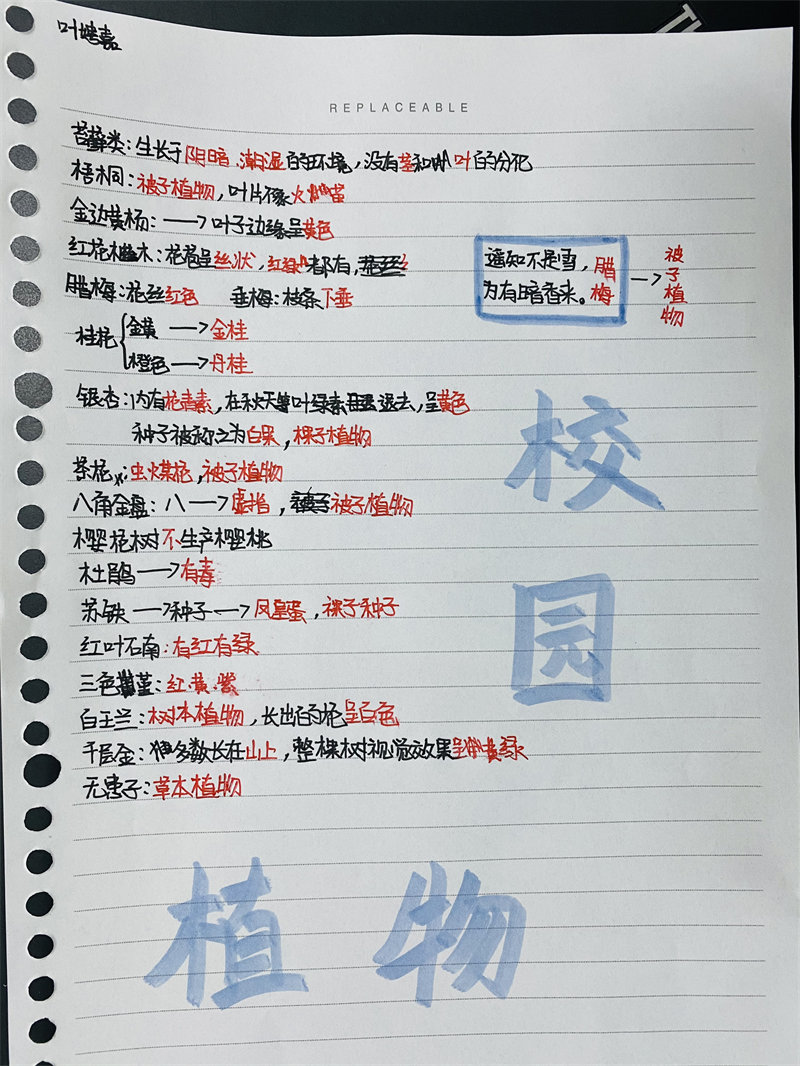 REPLACEABLE
苔藓类：生长于阴暗潮湿的环境，没有茎和叶的分化
梧桐：被子植物，叶片像火焰
金边黄杨：——>叶子边缘呈黄色
红花檵木：花苞呈丝状，红绿都有，
遥知不是雪，腊
为有暗香来。梅
—>被子植物
腊梅：花丝红色 垂梅：枝条下垂
桂花{金黄——>金桂
橙色——>丹桂
银杏：内有花青素，在秋天等叶绿素退去，呈黄色
种子被称之为白果，裸子植物
茶花：虫媒花，被子植物
八角金盘：八——>虚指，被子植物
樱花树不生产樱桃
杜鹃——>有毒
苏铁——>种子——>凤凰蛋，裸子种子
红叶石南：有红有绿
三色堇：红、黄、紫
白玉兰：树本植物，长出的花呈白色
千层金：多数长在山上，整棵树视觉效果呈黄绿
无患子：草本植物
校
园
植物